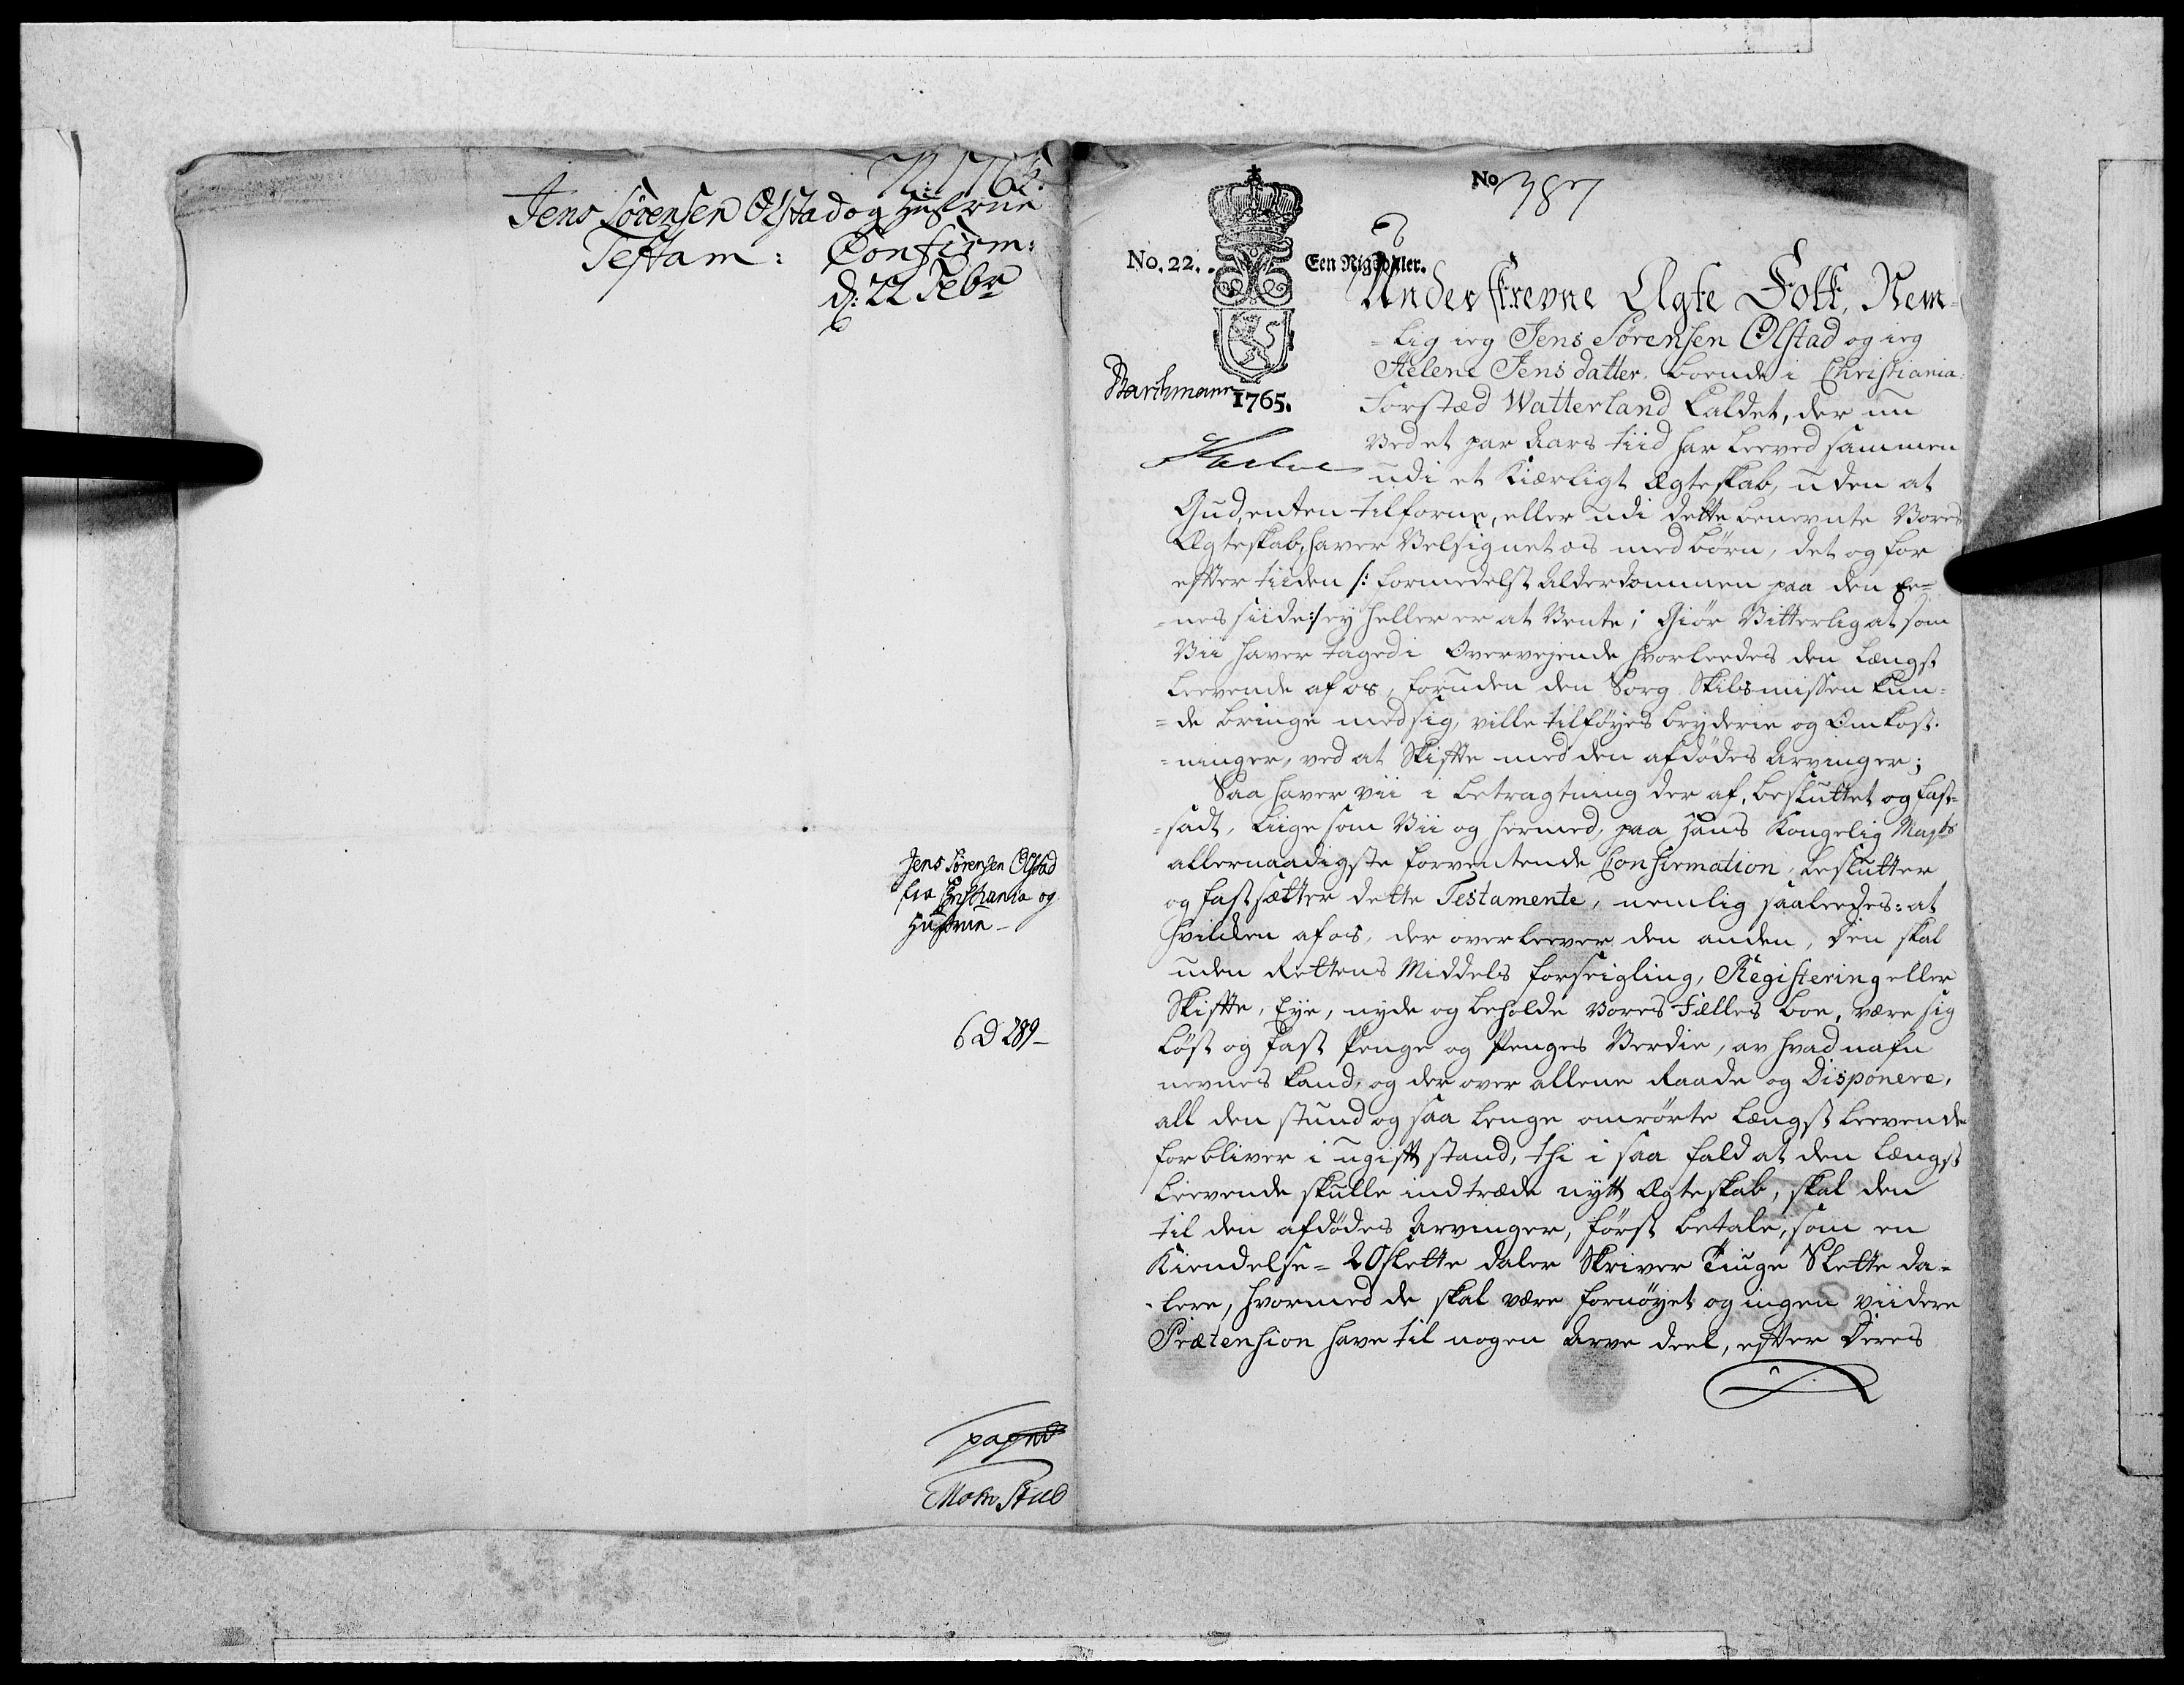 N: 1765.
Jens Sörensen Olstad og Hustrue
Testam: Confirm:
d: 22 Febr
Jens Sörensen Olstad
fra Christiania og
Hustrue -
6 D 289 -
Moss Stub
No 387
No. 22. Een Rigsdaler.
1765.
Barthmann
Underskrevne Ægte Folk, Nem-
-lig ieg Jens Sørensen Olstad og ieg
Helene Jens datter, boende i Christiania
Forstæd Watterland kaldet, der nu
Ved et par Aars tiid har leeved sammen
udi et Kiærligt Ægteskab, uden at
Gud, enten tilforne, eller udi dette benevnte Vores
Ægteskab, haver Velsignet os med børn, det og for
efter tiiden /: formedelst Alderdommen paa den Ee-
-nes siide :/ ey heller er at Vente; Giør Vitterlig at som
Vii haver taged i Overvejende hvorleedes den Længst
leevende af os, foruden den Sorg Skilsmissen kun-
-de bringe med sig, ville tilføyes bryderie og Omkost-
-ninger, ved at Skifte med den afdødes Arvinger;
Saa haver vii i betragtning der af, besluttet og fast-
-sadt, liige som Vii og hermed, paa Hans Kongelig Majts
allernaadigste forventende Confirmation, beslutter
og fastsætter dette Testamente, nemlig saaleedes: at
hvilken af os, der overleever den anden, Den skal
uden Rettens Middels forseigling, Registering eller
Skifte, Eye, nyde og beholde Vores Fælles boe, være sig
Løst og fast Penge og Penges Verdie, av hvad nafn
nevnes kand, og der over allene Raade og Disponere,
all den stund og saa lenge omrørte Længst leevende
forbliver i ugift stand, thi i saa fald at den Længst
Leevende skulle indtræde nytt Ægteskab, skal den
til den afdødes Arvinger, først betale, som en
Kiendelse - 20 slette daler Skriver Tiuge Slette da-
-lere, hvormed de skal være fornøyet og ingen viidere
Prætension have til nogen Arve deel, efter Deres